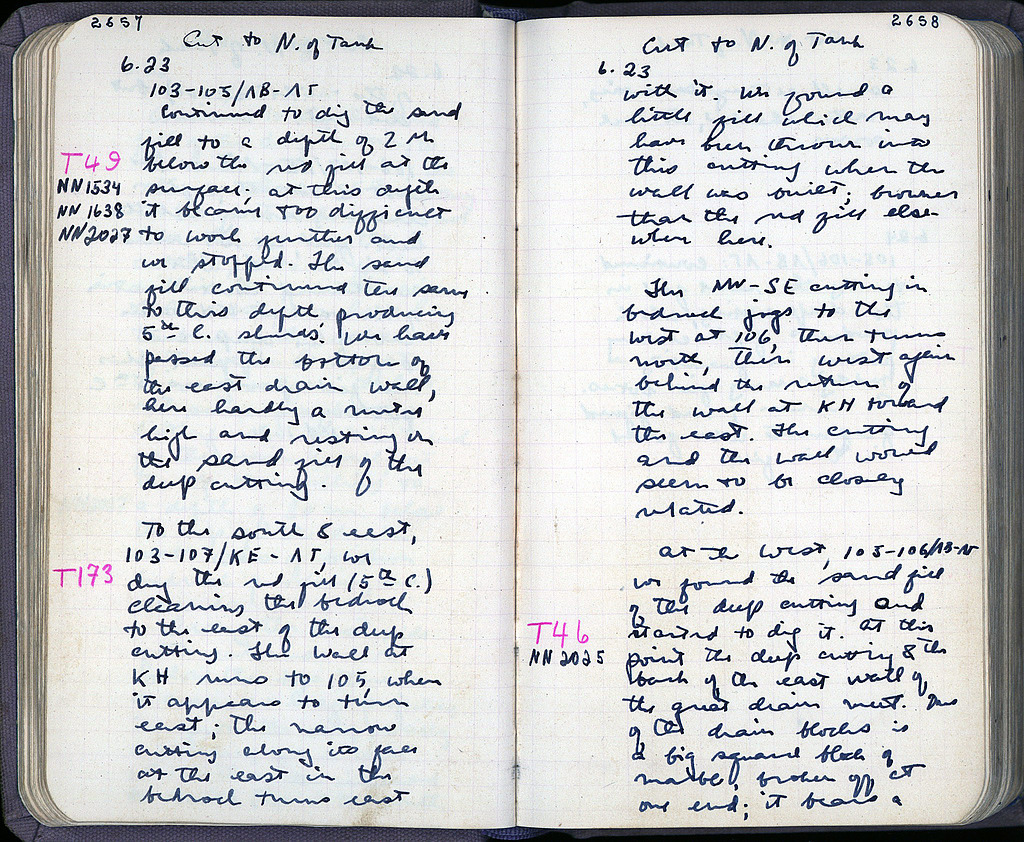 2657
Cut to N. of Tank
6.23
103-105/ΛB-ΛΤ
Continued to dig the sand
fill to a depth of 2 M
T49
below the red fill at the
NN1534
surface; at this depth
NN 1638
it became too difficult
NN2027
to work further and
we stopped. The sand
fill continued the same
to this depth producing
5th c. sherds. We have
passed the bottom of
the east drain wall,
here hardly a meter
high and resting on
the sand fill of the
deep cutting.
To the south & east,
103-107/KE-ΛΤ, we
T173
dug the red fill (5th C.)
clearing the bedrock
to the east of the deep
cutting. The wall at
KH runs to 105, when
it appears to turn
east; the narrow
cutting along its face
at the east in the
bedrock turns east
2658
Cut to N. of Tank
6.23
with it. We found a
little fill which may
have been thrown into
this cutting when the
wall was built; browner
than the red fill else-
where here.
The NW-SE cutting in
bedrock jogs to the
west at 106, then turns
north, then west again
behind the return of
the wall at KH toward
the east. The cutting
and the wall would
seem to be closely
related.
At the west, 105-106/ΛB-ΛΓ
we found the sand fill
of the deep cutting and
T46
started to dig it. At this
NN 2025
point the deep cutting & the
back of the east wall of
the great drain meet. One
of the drain blocks is
a big square block of
marble, broken off at
one end; it bears a